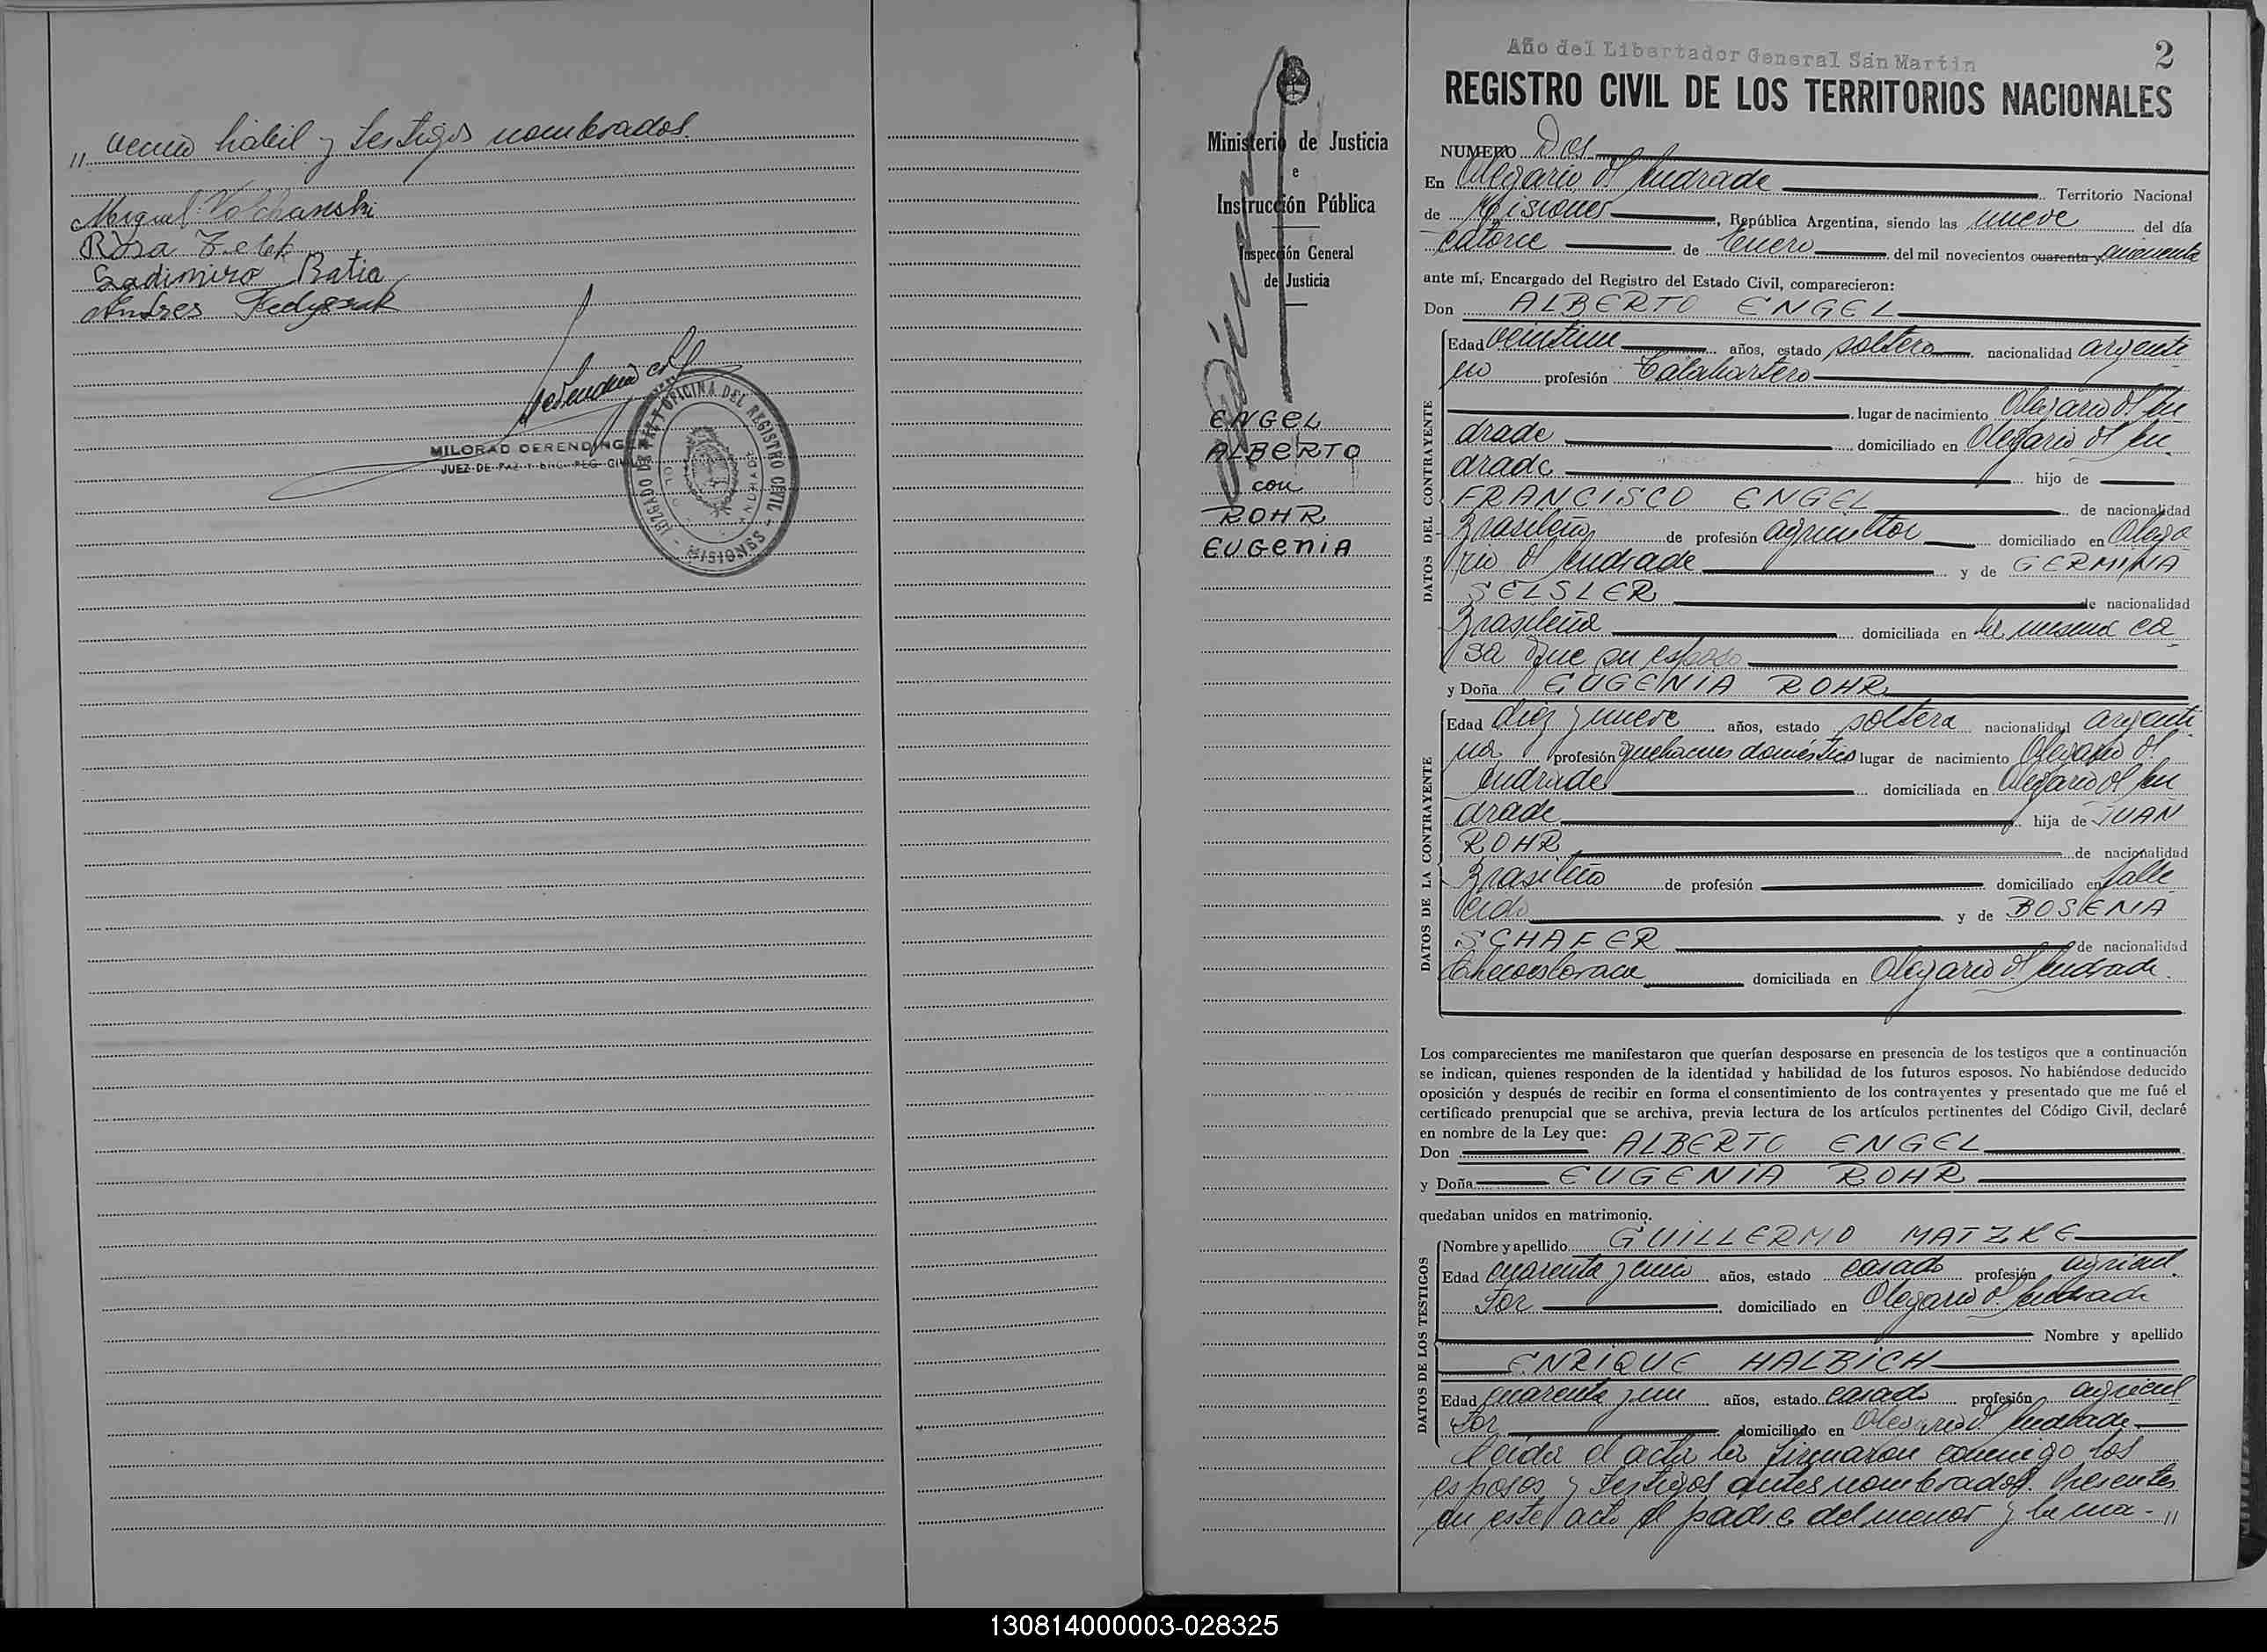 " vecino hábil y testigos nombrados.
Miguel Volchanski
Rosa
Ladimiro Batia
Andres
MILORAD DERENDINGER
JUEZ DE PAZ Y ENC. REG. CIVIL
JUZGADO DE PAZ Y OFICINA DEL REGISTRO CIVIL - MISIONES -
Ministerio de Justicia
e
Instrucción Pública
Inspección General
de Justicia
ENGEL
ALBERTO
con
ROHR
EUGENIA
Año del Libertador General San Martín
2
REGISTRO CIVIL DE LOS TERRITORIOS NACIONALES
NUMERO Dos
En Olegario V. Andrade Territorio Nacional
de Misiones, República Argentina, siendo las nueve del día
catorce de Enero del mil novecientos cuarenta y cincuenta
ante mí, Encargado del Registro del Estado Civil, comparecieron:
Don ALBERTO ENGEL
DATOS DEL CONTRAYENTE
Edad años, estado soltero nacionalidad argenti
no profesión Talabartero
lugar de nacimiento Olegario V. An
drade domiciliado en Olegario V. An
drade hijo de
FRANCISCO ENGEL de nacionalidad
Brasileño de profesión agricultor domiciliado en Olega
rio V. Andrade y de GERMINA
SELSLER de nacionalidad
Brasileña domiciliada en la misma ca
sa que su esposo
y Doña EUGENIA ROHR
DATOS DE LA CONTRAYENTE
Edad diez y nueve años, estado soltera nacionalidad argenti
na profesión quehaceres domésticos lugar de nacimiento Olegario V.
Andrade domiciliada en Olegario V. An
drade hija de JUAN
ROHR de nacionalidad
Brasileño de profesión domiciliado en falle
cido y de BOSENA
SCHAFER de nacionalidad
Checoeslovaca domiciliada en Olegario V. Andrade.
Los comparecientes me manifestaron que querían desposarse en presencia de los testigos que a continuación
se indican, quienes responden de la identidad y habilidad de los futuros esposos. No habiéndose deducido
oposición y después de recibir en forma el consentimiento de los contrayentes y presentado que me fué el
certificado prenupcial que se archiva, previa lectura de los artículos pertinentes del Código Civil, declaré
en nombre de la Ley que:
Don ALBERTO ENGEL
y Doña EUGENIA ROHR
quedaban unidos en matrimonio.
DATOS DE LOS TESTIGOS
Nombre y apellido GUILLERMO MATZKE
Edad cuarenta y años, estado casado profesión agricul
tor domiciliado en Olegario V. Andrade
Nombre y apellido
ENRIQUE HALBICH
Edad cuarenta y un años, estado casado profesión agricul
tor domiciliado en Olegario V. Andrade
Leída el acta la firmaron conmigo los
esposos y testigos antes nombrados. Presentes
en este acto el padre del menor y la ma- "
130814000003-028325